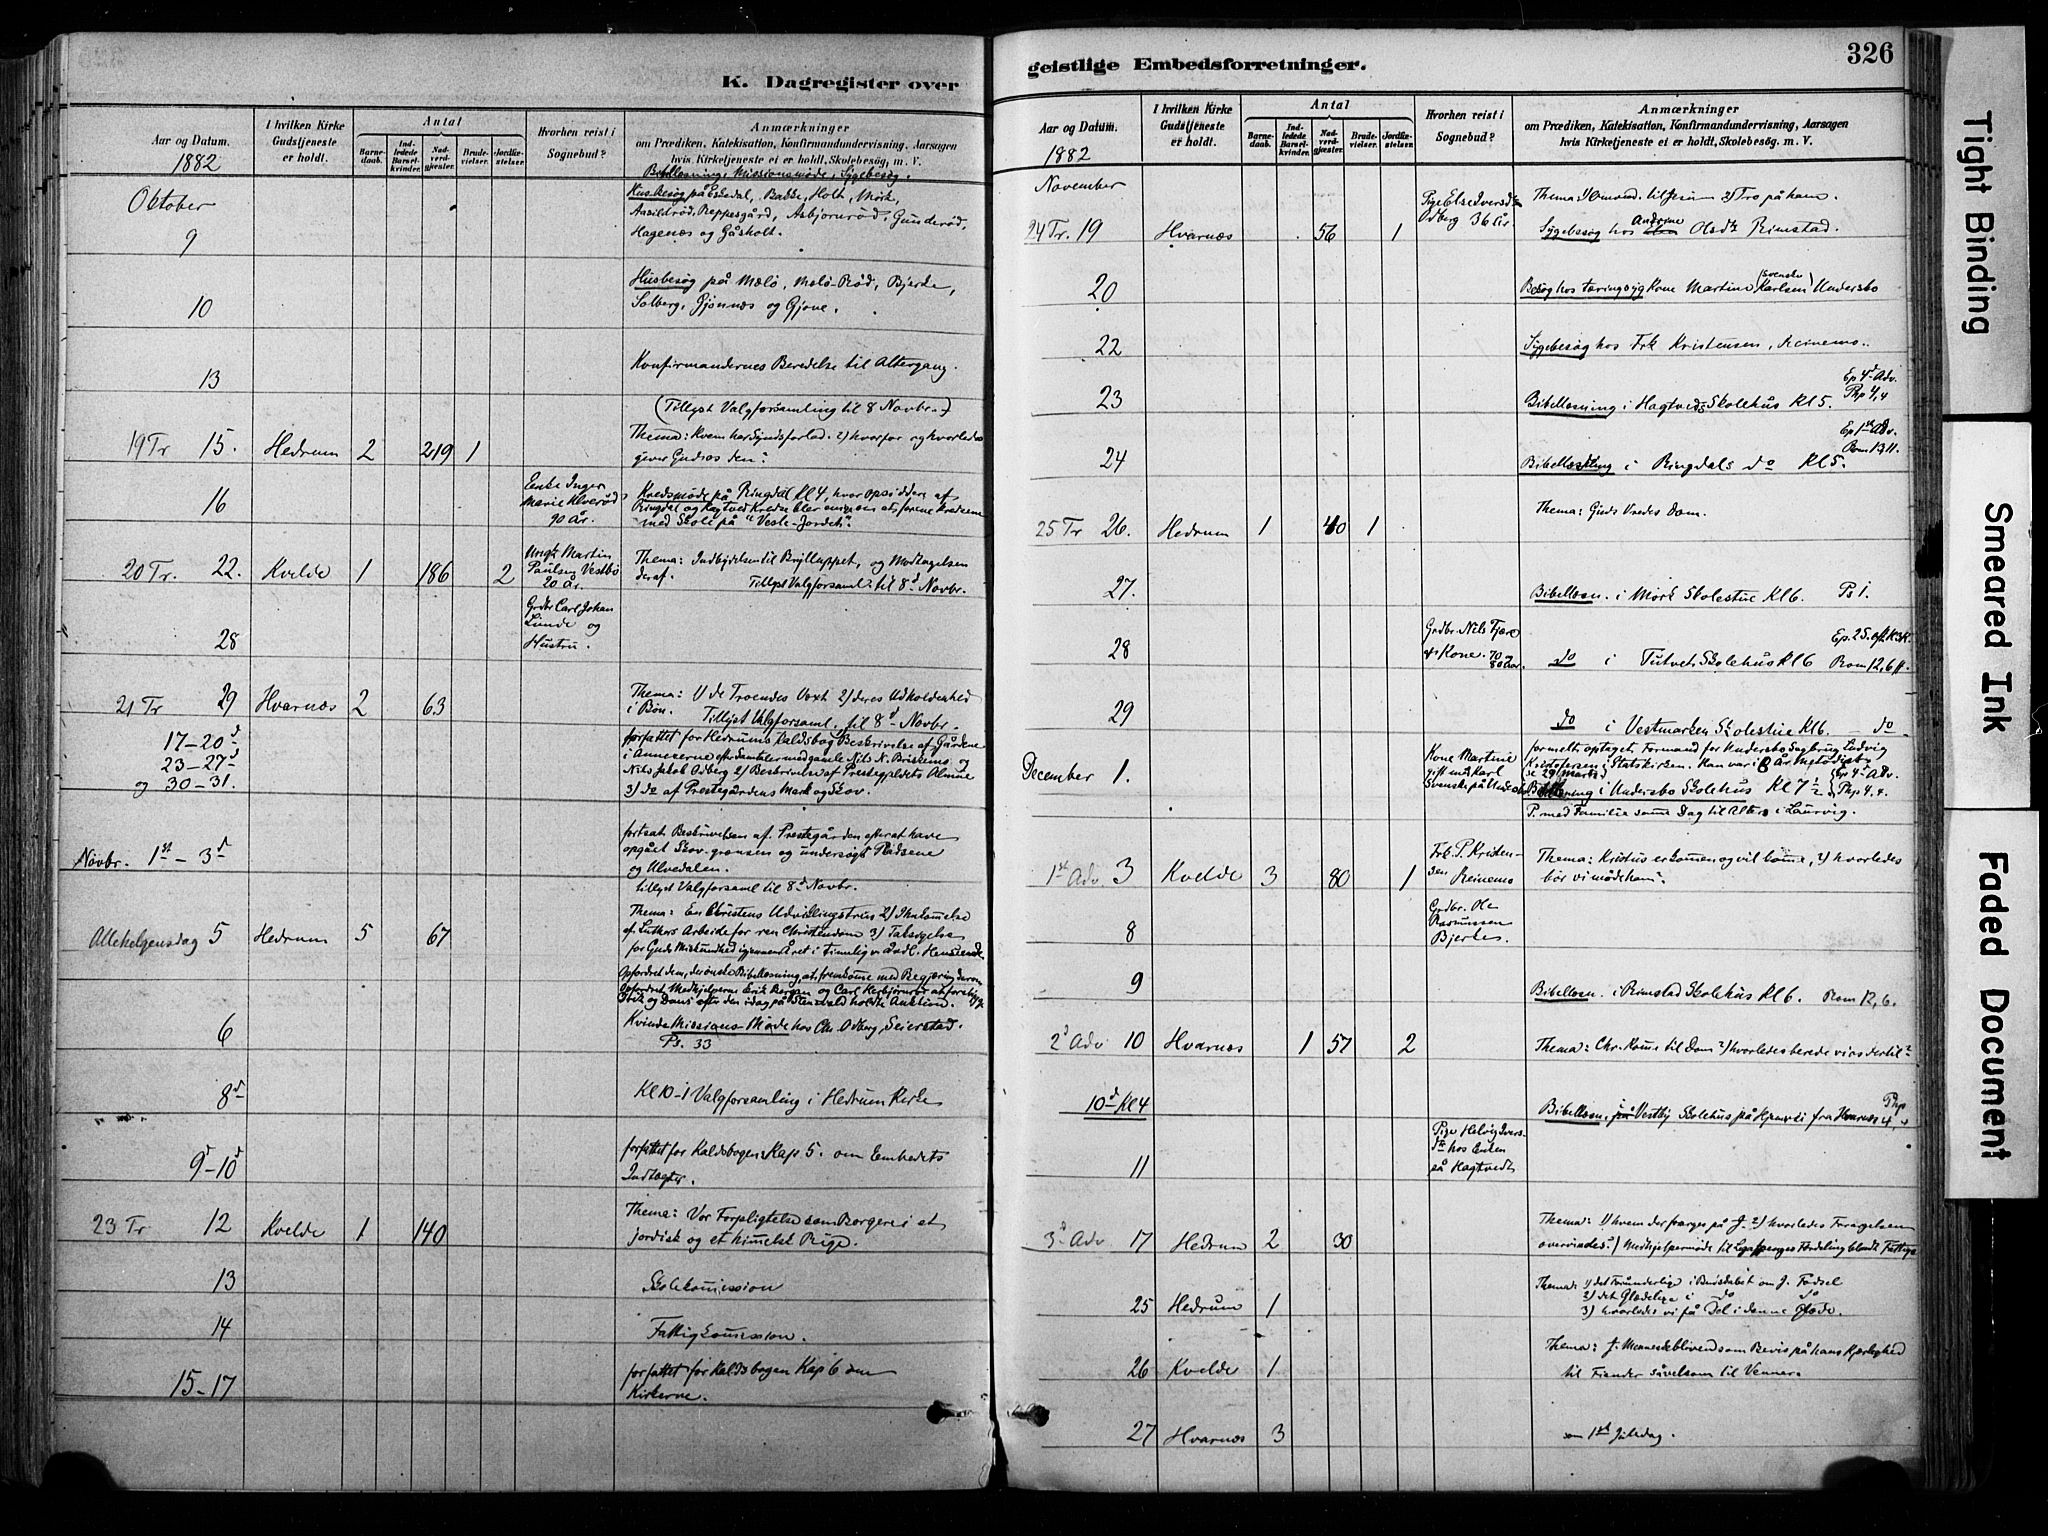 K. Dagregister over
Aar og Datum.
1882
I hvilken Kirke
Gudstjeneste
er holdt.
Antal
Barne-
daab.
Ind-
ledede
Barsel-
kvinder.
Nad-
verd-
gjester.
Brude-
vielser.
Jordfæ-
stelser.
Hvorhen reist i
Sognebud?
Anmærkninger
om Prædiken, Katekisation, Konfirmandundervisning, Aarsagen
hvis Kirketjeneste ei er holdt, Skolebesøg, m. V.
Bibellæsning, Missionsmøde, Sygebesøg.
Oktober
9
Husbesøg på Eskedal, Bakke, Holt, Mørk,
Aasildrød, Reppesgård, Asbjørnrød, Gunderød,
Hagenæs og Gåsholt.
10
Husbesøg på Mælø, Mælø-Rød, Bjerke,
Solberg, Gjønnæs og Gjone.
13
Konfirmandernes Beredelse til Altergang.
(Tillyst Valgforsamling til 8 Novbr.)
19 Tr 15. Hedrum 2 219 1
Thema: hvem har Syndsforlad. 2) hvorfor og hvorledes
giver Gud os den?
16
Enke Inger
Marie Alverød
90 År.
Kredsmøde på Ringdal Kl 4, hvor opsiddere af
Ringdal og Hagtved Kredse blev enige om at forene kredsene
med Skole på "Vestle-Jordet".
20 Tr. 22. Kvelde 1 186 2
Ungk. Martin
Paulsen Vestbø
20 år.
Thema: Indbydelsen til Brylluppet, og Modtagelsen
deraf. Tillyst Valgforsaml. til 8d Novbr.
28
Grdbr Carl Johan
Lunde og
Hustru.
21 Tr 29 Hvarnæs 2 63
Thema: 1) de Troendes Vext 2) deres Udholdenhed
i Bøn. Tillyst Valgforsaml. til 8d Novbr.
17-20d
23-27d
og 30-31.
forfattet for Hedrums Kaldsbog Beskrivelse af Gårdene
i Annexerne efter Samtaler med gamle Nils N. Briskemo og
Nils Jakob Odberg 2) Beskrivelse af Prestegjeldets Alminde
3) do af Prestegårdens Mark og Skov.
Novbr. 1st - 3d
fortsat Beskrivelsen af Prestegården efter at have
opgået Skov-grænsen og undersøgt Pladsene
og Ulvedalen.
tillyst Valgforsaml til 8d Novbr.
Allehelgensdag 5 Hedrum 5 67
Thema: En Christens Udviklingstrin 2) Ihukommelse
af Luthers Arbeide for ren Christendom 3) Taksigelse
for Guds Miskundhed igjennem Året i timelig og åndl. Henseende
Opfordret dem, der ønske Bibellæsning, at fremkomme med Begjæring derom
Opfordret Medhjelperne Erik Bergan og Carl Herbjørnrød at forebyg
Drik og Dans efter den idag på Stensvald holdte Auktion.
6
Kvinde Missions-Møde hos Chr. Odberg, Seierstad.
Ps. 33
8d
Kl 10-1 Valgforsamling i Hedrum Kirke
9d-10d
forfattet for Kaldsbogen Kap 5. om Embedets
Indtægter.
23 Tr 12 Kvelde 1 140
Thema: Vor Forpligtelse som Borgere i et
jordisk og et himmelsk Rige.
13
Skolekommission
14
Fattigkommission.
15-17
forfattet for Kaldsbogen Kap 6 om
Kirkerne.
geistlige Embedsforretninger.
326
Aar og Datum.
1882
I hvilken Kirke
Gudstjeneste
er holdt.
Antal
Barne-
daab.
Ind-
ledede
Barsel-
kvinder.
Nad-
verd-
gjester.
Brude-
vielser.
Jordfæ-
stelser.
Hvorhen reist i
Sognebud?
Anmærkninger
om Prædiken, Katekisation, Konfirmandundervisning, Aarsagen
hvis Kirketjeneste ei er holdt, Skolebesøg, m. V.
November
24 Tr. 19 Hvarnæs 56 1
Pige Else Iversdtr
Odberg 36 år.
Thema: 1) Omvend. til Jesum 2) Tro på ham.
Sygebesøg hos Andrine Olsdtr Rimstad.
20
Besøg hos tæringssyg Kone Martine (Svenske) Karlsen Undersbo
22
Sygebesøg hos Frk Kristensen, Reinemo.
23
Bibellæsning i Hagtvedt Skolehus Kl 5.
Ep 4d Adv.
Php 4,4
24
Bibellæsning i Ringdals do Kl 5.
Ep 1st Adv.
Rom 13,11.
25 Tr 26. Hedrum 1 40 1
Thema: Guds Vredes Dom.
27.
Bibellæsn. i Mørk Skolestue Kl 6. Ps 1.
28
Grdbr. Nils Fjære
og Kone. 70 og
80 år.
do i Tutvet Skolehus Kl 6
Ep. 2 S. eft. H3K.
Rom 12,6 ff.
29
do i Vestmarken Skolestue Kl 6. do
December 1.
Kone Martine
gift med Karl
Svenske på Undersbo
formelt optaget Formand for Undersbo Sagbrug Ludvig
Kristofersen i Statskirken. Han var i 8 år Methodist
(se 29 Marts)
Bibellæsning i Undersbo Skolehus Kl 7 1/2
Ep 4d Adv.
Php 4,4.
P. med Familie samme Dag til Alters i Laurvig.
1st Adv. 3 Kvelde 3 80 1
Frk. P. Kristen-
sen Reinemo
Thema: Kristus er kommen og vil komme, 2) hvorledes
bør vi møde ham?
8
Grdbr. Ole
Rasmussen
Bjerke.
9
Bibellæsn. i Rimstad Skolehus Kl 6. Rom 12,6.
2d Adv 10 Hvarnæs 1 57 2
Thema: Chr. Komme til Dom 2) hvorledes berede vi os dertil?
10d Kl 4
Bibellæsn. i Vestby Skolehus på Hjemvei fra Hvarnæs Php 4,4
11
Pige Helvig Ivers-
dtr hos Enken
på Hagtvedt
3d Adv 17 Hedrum 2 30
Thema: 1) hvem der forarges på J. 2) hvorledes Forargelsen
overvindes?) Medhjelpermøde til Legatpenges Fordeling blandt Fattige
25 Hedrum 1
Thema: 1) det Forunderlige i Budskabet om J. Fødsel
2) det Glædelige i do do
3) hvorledes vi få Del i denne Glæde.
26 Kvelde 1
Thema: J. Menneskeblivend som Bevis på hans Kjærlighed
til Fiender såvelsom til Venner.
27 Hvarnæs 3
som 1st Juledag.
Tight Binding
Smeared Ink
Faded Document